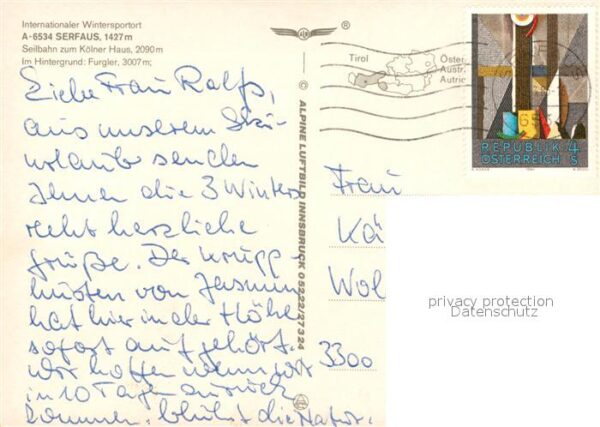 Internationaler Wintersportort
A-6534 SERFAUS, 1427m
Seilbahn zum Kölner Haus, 2090m
Im Hintergrund: Furgler, 3007m;
®
Liebe Frau Ralfs,
aus unserem Ski-
urlaub senden
Ihnen die 3 Winters
recht herzliche
Grüße. Der Krupp-
husten von Jasmin
hat hier in der Höhe
sofort aufgehört.
Wir hoffen wenn wir
in 10 Tagen zurück
kommen, blüht die Natur.
© ALPINE LUFTBILD INNSBRUCK 05222/27324
Tirol
Öster
Austr
Autric
REPUBLIK 4
ÖSTERREICH S
Frau
Kä
Wol
3300
privacy protection
Datenschutz